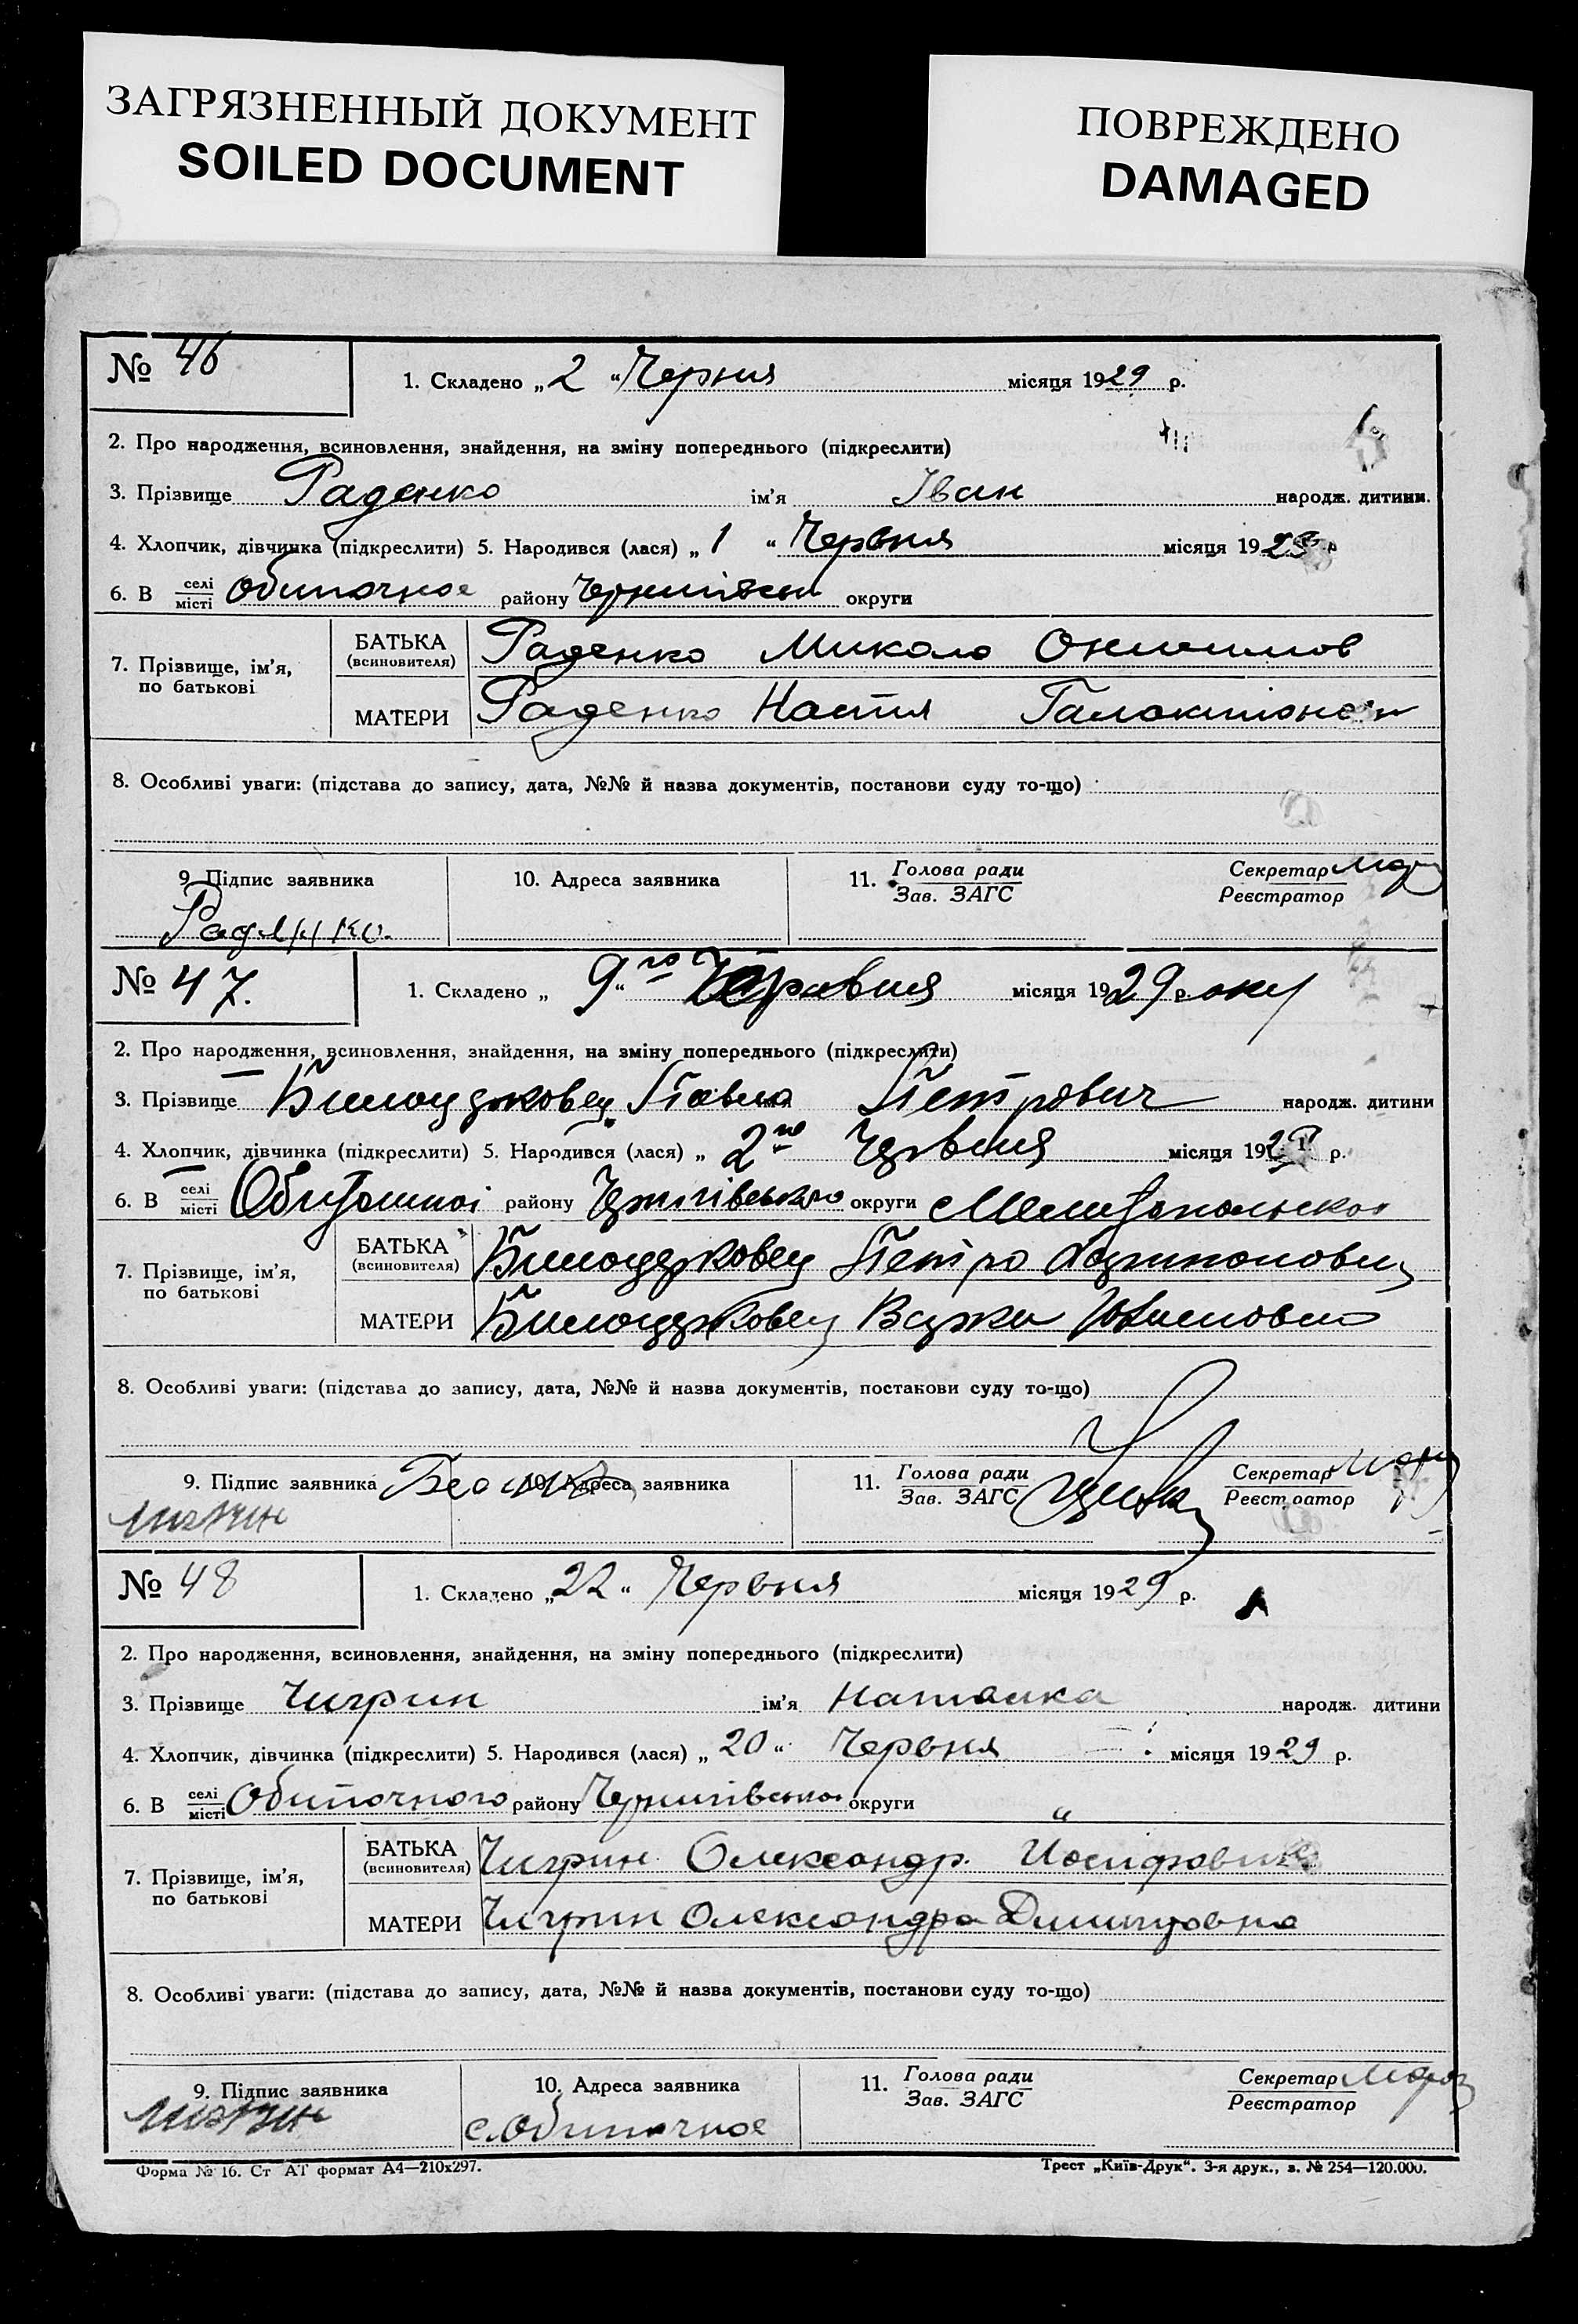 ЗАГРЯЗНЕННЫЙ ДОКУМЕНТ
SOILED DOCUMENT
ПОВРЕЖДЕНО
DAMAGED
№ 46
1. Складено „ 2 “ Черня місяця 1929 р.
2. Про народження, всиновлення, знайдення, на зміну попереднього (підкреслити)
3. Прізвище Раденко ім’я Іван народж. дитини.
4. Хлопчик, дівчинка (підкреслити) 5. Народився (лася) „ 1 “ Червня місяця 1929 р
6. В селі місті Обиточное району округи
7. Прізвище, ім’я, по батькові
БАТЬКА (всиновителя) Раденко Микола
МАТЕРИ Раденко Настя
8. Особливі уваги: (підстава до запису, дата, №№ й назва документів, постанови суду то-що)
9. Підпис заявника
10. Адреса заявника
11. Голова ради Зав. ЗАГС
Секретар Реєстратор
Раденко.
№ 47.
1. Складено „ 9го “ місяця 1929 р. оку
2. Про народження, всиновлення, знайдення, на зміну попереднього (підкреслити)
3. Прізвище Билоцжковец Павло Петрович народж. дитини
4. Хлопчик, дівчинка (підкреслити) 5. Народився (лася) „ 2го Червня місяця 192 р.
6. В селі місті району Чернігівського округи Мелитопольскої
7. Прізвище, ім’я, по батькові
БАТЬКА (всиновителя) Билоцерковец Петро
МАТЕРИ Билоцерковец
8. Особливі уваги: (підстава до запису, дата, №№ й назва документів, постанови суду то-що)
9. Підпис заявника
10. Адреса заявника
11. Голова ради Зав. ЗАГС
Секретар Реєстратор
№ 48
1. Складено „ 22 “ Червня місяця 1929 р.
2. Про народження, всиновлення, знайдення, на зміну попереднього (підкреслити)
3. Прізвище Чигрин ім’я Наталка народж. дитини
4. Хлопчик, дівчинка (підкреслити) 5. Народився (лася) „ 20 “ Червня місяця 1929 р.
6. В селі місті Обиточного району Чернигівського округи „
7. Прізвище, ім’я, по батькові
БАТЬКА (всиновителя) Чигрин Олександр. Иосифович
МАТЕРИ Чигрин Олександра
8. Особливі уваги: (підстава до запису, дата, №№ й назва документів, постанови суду то-що)
9. Підпис заявника
10. Адреса заявника
11. Голова ради Зав. ЗАГС
Секретар Мороз
Реєстратор
с. Обиточное
Форма № 16. Ст АТ формат А4—210х297.
Трест „Київ-Друк“. 3-я друк., з. № 254—120.000.